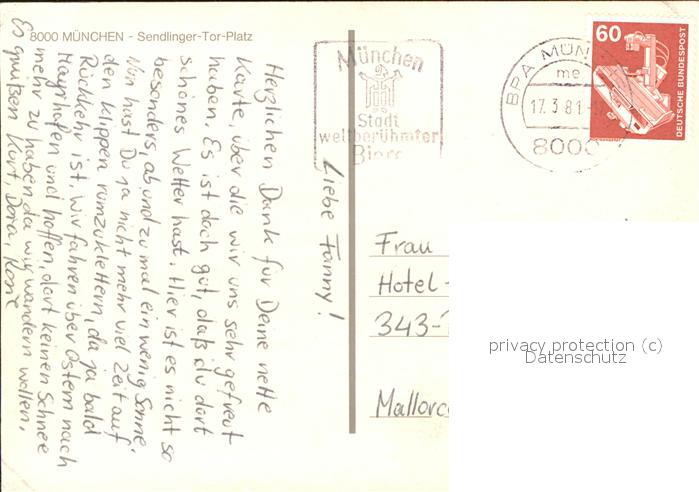 8000 MÜNCHEN - Sendlinger-Tor-Platz
München
Stadt
weltberühmter
Biere
BPA MÜN
me
17.3.81-1
8000
60
DEUTSCHE BUNDESPOST
Liebe Fanny!
Herzlichen Dank für Deine nette
Karte, über die wir uns sehr gefreut
haben. Es ist doch gut, daß du dort
schönes Wetter hast. Hier ist es nicht so
besonders, ab und zu mal ein wenig Sonne.
Nun hast Du ja nicht mehr viel Zeit auf
den Klippen rumzuklettern, da ja bald
Rückkehr ist. Wir fahren über Ostern nach
Mayrhofen und hoffen, dort keinen Schnee
mehr zu haben, da wir wandern wollen.
Es grüßen Kurt, Dora,
Frau
Hotel-
343-
Mallorc
privacy protection (c)
Datenschutz